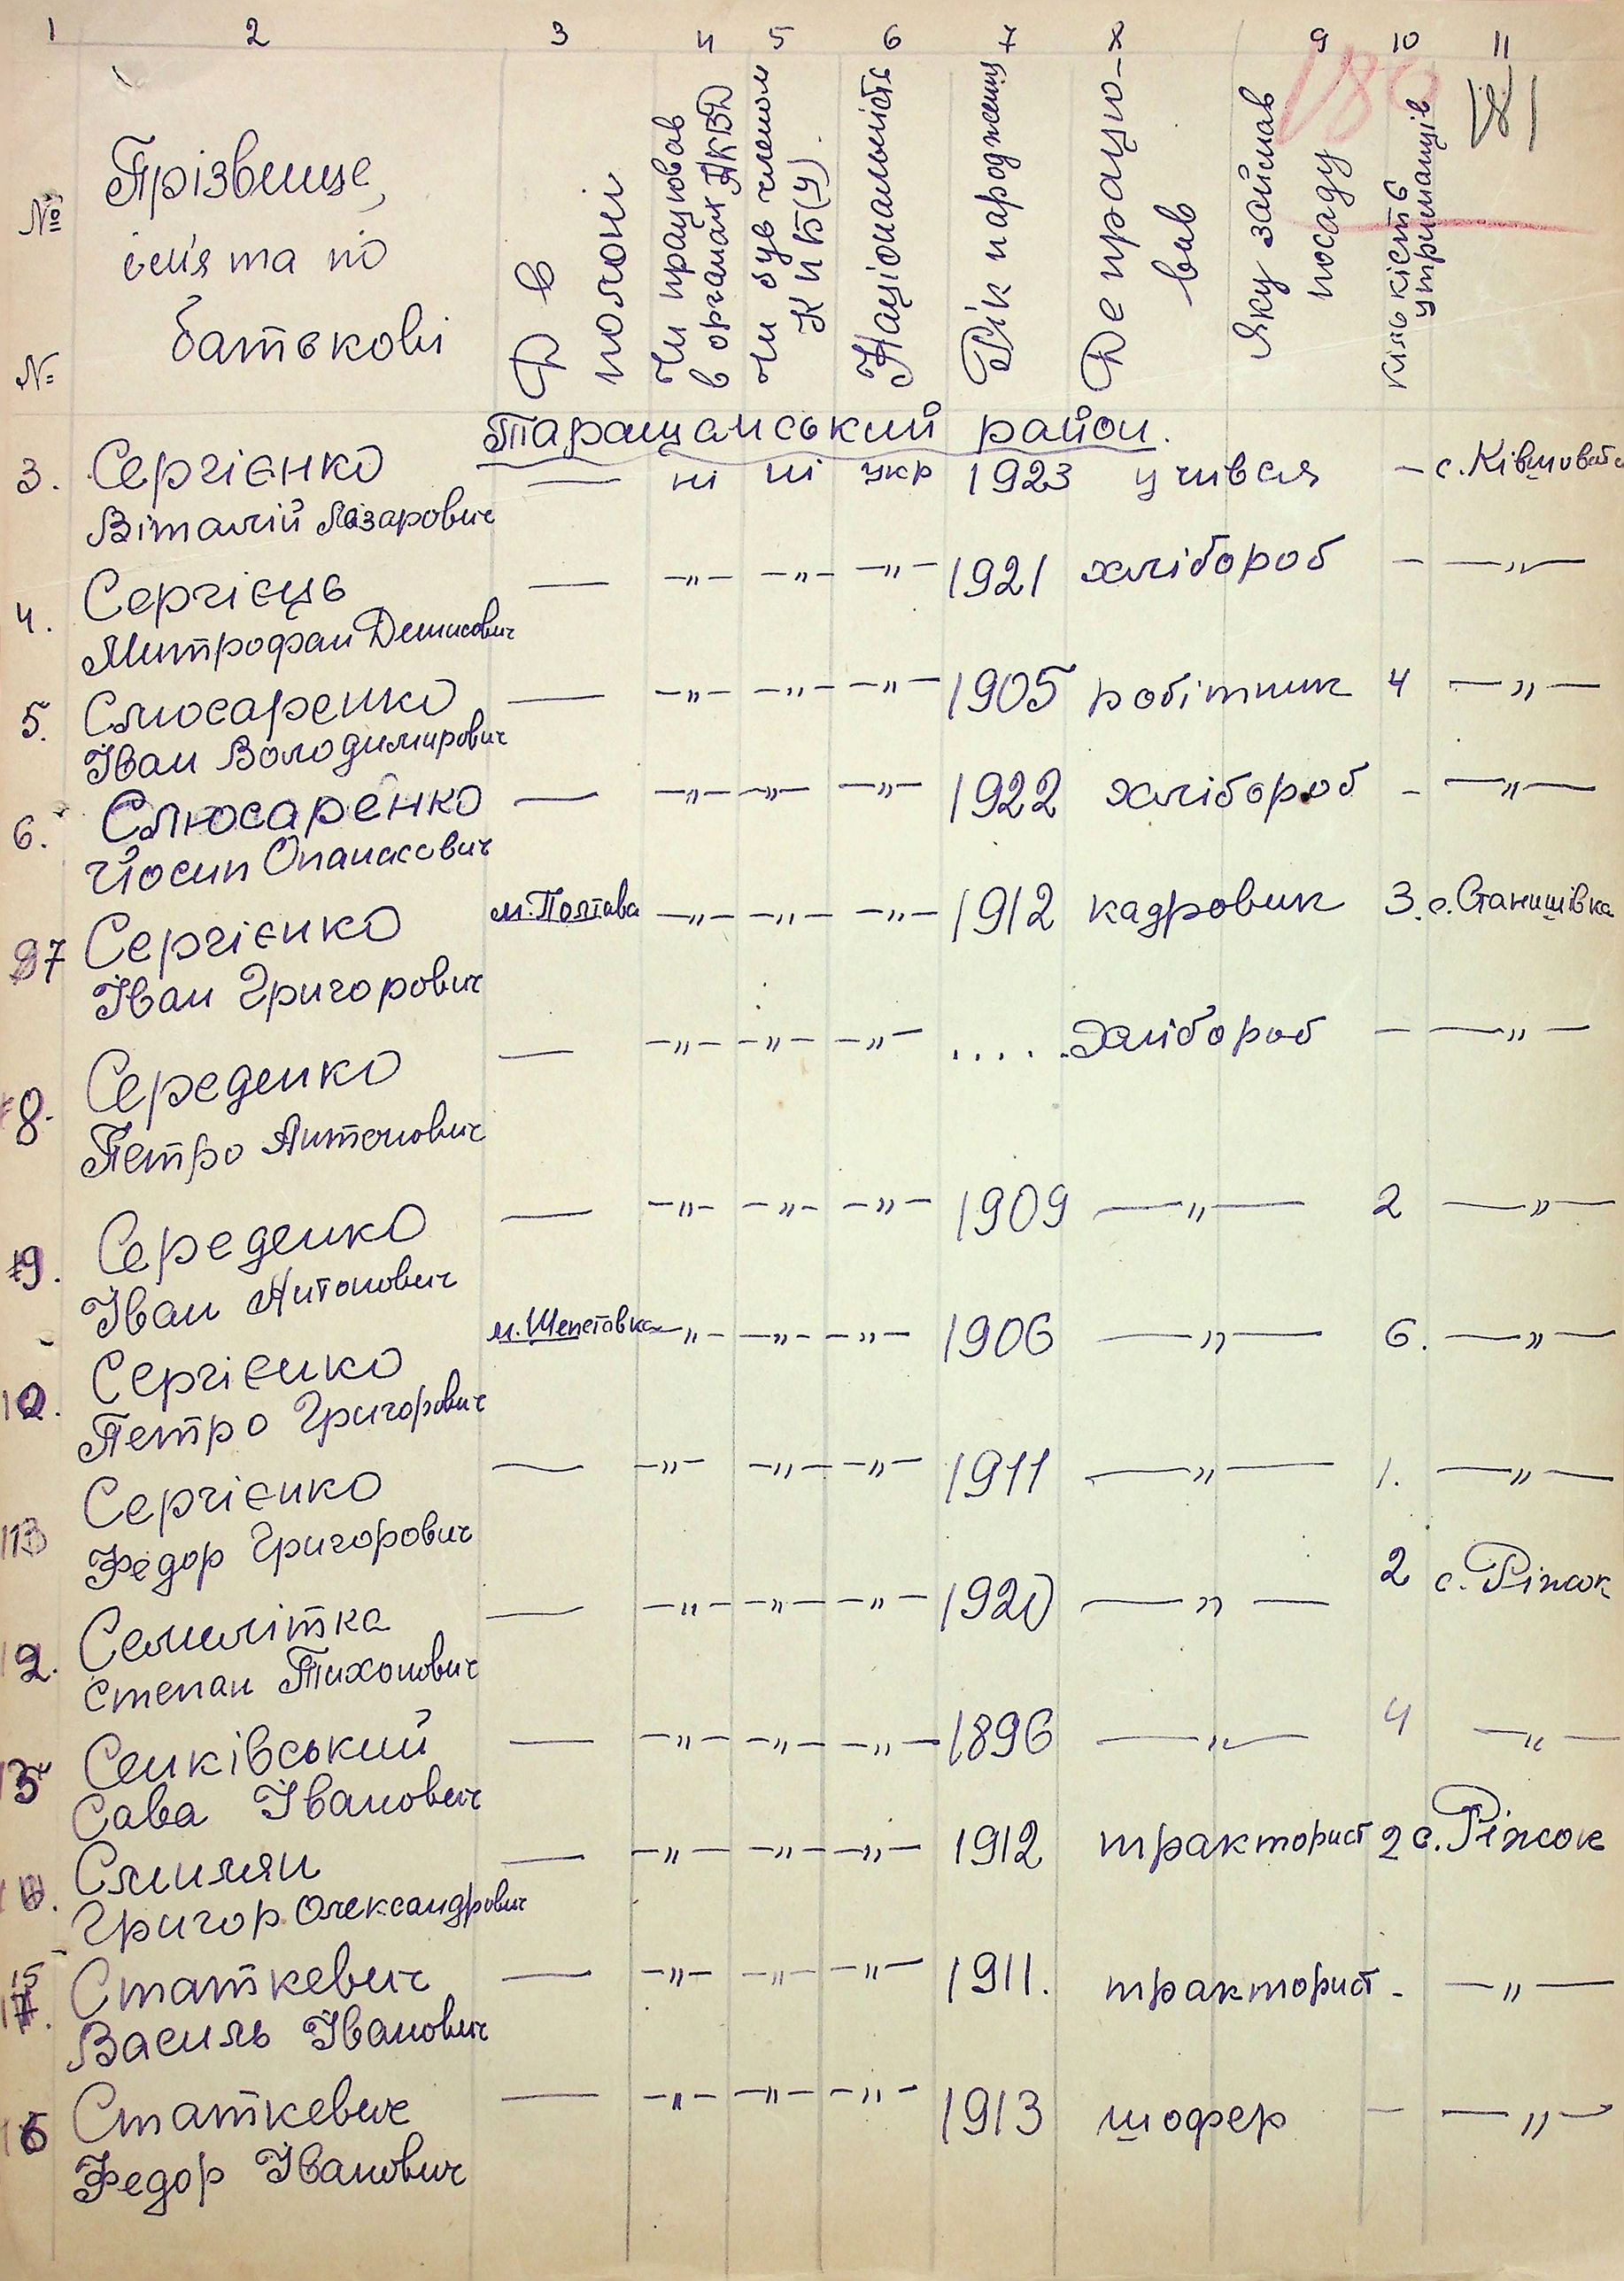 1 2 3 4 5 6 7 8 9 10 11
180
181
№№ Прізвище, ім'я та по батькові
Де в полоні
Чи працював в органах НКВД
Чи був членом КПБ(У).
Національність
Рік народження
Де працював
Яку займав посаду
Кількість утриманців
№
Таращанський район.
3. Сергієнко — ні ні укр 1923 учився — с. Ківшовата
Віталій Лазарович
4. Сергієць — —"— —"— —"— 1921 хлібороб — —"—
Митрофан Денисович
5. Слюсаренко — —"— —"— —"— 1905 робітник 4 —"—
Іван Володимирович
6. Слюсаренко — —"— —"— —"— 1922 хлібороб - —"—
Йосип Опанасович
7 Сергієнко м. Полтава —"— —"— —"— 1912 кадровик 3. с. Станишівка
Іван Григорович
8. Середенко — —"— —"— —"— ..... хлібороб — —"—
Петро Антонович
9. Середенко — —"— —"— —"— 1909 —"— 2 —"—
Іван Антонович
10. Сергієнко м. Шепетовка —"— —"— —"— 1906 —"— 6. —"—
Петро Григорович
11 Сергієнко — —"— —"— —"— 1911 —"— 1. —"—
Федор Григорович
12. Семилітка — —"— —"— —"— 1920 —"— 2 с. Ріжок
Степан Тихонович
13 Сенківський — —"— —"— —"— 1896 —"— 4 —"—
Сава Іванович
Смилян — —"— —"— —"— 1912 тракторист 2 с. Ріжок
Григор Олександрович
15 Статкевич — —"— —"— —"— 1911. тракторист - —"—
17. Василь Іванович
16 Статкевич — —"— —"— —"— 1913 шофер — —"—
Федор Іванович